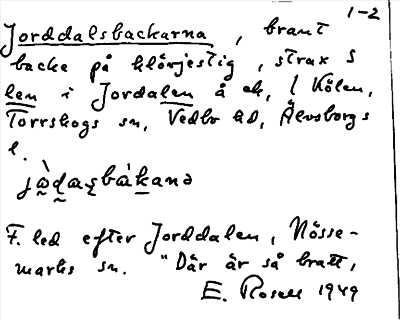 1-2
Jorddalsbackarna, brant
backe på klövjestig, strax S
len i Jordalen å ek. l Kölen,
Torrskogs sn, Vedbo hd, Älvsborgs
l.
jà̰d̰a̰ʂbàka̱nə
F. led efter Jorddalen, Nösse-
marks sn. "Där är så bratt,
E. Rosell 1949